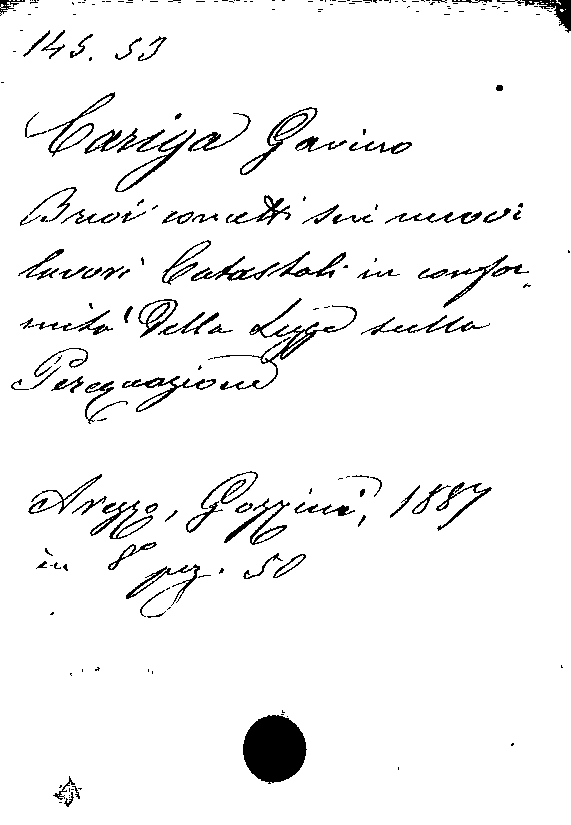 145. 53
Cariga Gavino
Brevi concetti sui nuovi
lavori Catastali in confor
mità Della Legge sulla
Perequazione
Arezzo, Gozzini, 1887
in 8° pag. 50